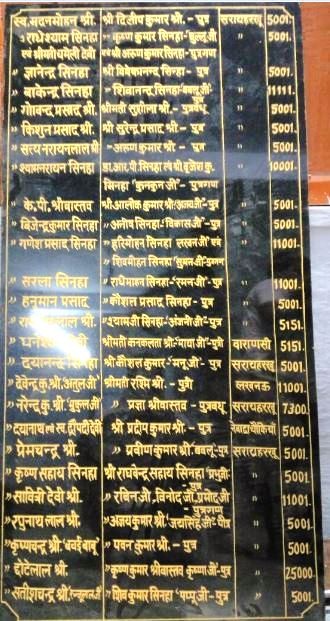 स्व. मदनमोहन श्री. श्री दिलीप कुमार श्री. - पुत्र सरायहरखू 5001.
" राधेश्याम सिनहा " कृष्ण कुमार सिनहा - " 5001.
एवं श्रीमती चमेली देवी एवं श्री अरुण कुमार सिनहा - पुत्रगण
" ज्ञानेन्द्र सिनहा श्री विवेकानन्द सिनहा - पुत्र " 5001.
" बाकेन्द्र सिनहा " शिवानन्द सिनहा - पुत्र " 11111.
" गोविन्द प्रसाद श्री. श्रीमती सुशीला श्री. - पुत्रवधू " 5001.
" किशुन प्रसाद श्री. श्री सुरेन्द्र प्रसाद श्री. - पुत्र " 5001.
" सत्य नरायनलाल श्री. " अरुण कुमार श्री. - पुत्र " 5001.
" श्यामनरायन सिनहा डा. आर. पी. सिनहा एवं श्री बृजेश कु. " 10001.
सिनहा 'कुनकुन जी' - पुत्रगण
" के. पी. श्रीवास्तव श्री आलोक कुमार श्री. - पुत्र " 5001.
" बिजेन्द्र कुमार सिनहा " अनीष सिनहा - 'विकास जी' - पुत्र " 5001.
" गणेश प्रसाद सिनहा " हरिमोहन सिनहा लखन जी एवं " 11001.
" शिवमोहन सिनहा 'सुमन जी' -
" सरला सिनहा " राधेमोहन सिनहा - 'रमन जी' - पुत्र " 11001.
" हनुमान प्रसाद " कौशल प्रसाद सिनहा - पुत्र " 5001.
लाल श्री. " श्यामजी सिनहा - 'अंजनी जी' - पुत्र " 5151.
" देवी श्रीमती कनकलता श्री. - 'माधा जी' - पुत्री वाराणसी 5151.
" दयानन्द सिनहा श्री कौशल कुमार 'मनु जी' - पुत्र सरायहरखू 5001.
" देवेन्द्र कु. श्री. 'अतुल जी' श्रीमती रश्मि श्री. - पुत्री लखनऊ 11001.
" नरेन्द्र कु. श्री. 'मुकुल जी' " प्रज्ञा श्रीवास्तव - पुत्रवधू सरायहरखू 7300.
" दयानाथ एवं स्व. द्रौपदी देवी श्री प्रदीप कुमार श्री. - पुत्र 5001.
" प्रेमचन्द्र श्री. " प्रवीण कुमार श्री. 'बबलू' - पुत्र सरायहरखू 5001.
" कृष्ण सहाय सिनहा श्री राघवेन्द्र सहाय सिनहा - पुत्र " 5001.
" सावित्री देवी श्री. " रविन जी, विनोद जी, प्रमोद जी - पुत्रगण " 11001.
" रघुनाथ लाल श्री. " अजय कुमार श्री. 'जयसिंह जी' - पौत्र " 5001.
" कृष्णचन्द्र श्री. 'बवई बाबू' " पवन कुमार श्री. - पुत्र " 5001.
" छोटेलाल श्री. " कृष्ण कुमार श्रीवास्तव कृष्णा जी - पुत्र " 25000.
" सतीशचन्द्र श्री. " शिव कुमार सिनहा 'पप्पू जी' - पुत्र " 5001.